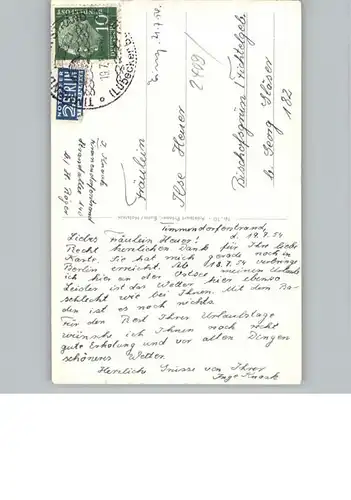 Timmendorferstrand
d. 19.7.54
Liebes Fräulein Heuer!
Recht herzlichen Dank für Ihre liebe
Karte. Sie hat mich gerade noch in
Berlin erreicht. Ab 18.7.54 verbringe
ich hier an der Ostsee meinen Urlaub
Leider ist das Wetter hier ebenso
schlecht wie bei Ihnen. Mit dem Ba-
den ist es noch nichts
Für den Rest Ihrer Urlaubstage
wünsche ich Ihnen noch recht
gute Erholung und vor allen Dingen
schöneres Wetter.
Herzliche Grüsse von Ihrer
Inge Knaak
Fräulein
Ilse Heuer
Bischofsgrün/Fichtelgeb.
b. Georg Häser
182
2409
I. Knaak
Timmendorferstrand
Strandallee 140
b/ H. Röger
10
DEUTSCHE BUNDESPOST
NOTOPFER
2 BERLIN
STEUERMARKE
(LÜBECKER B